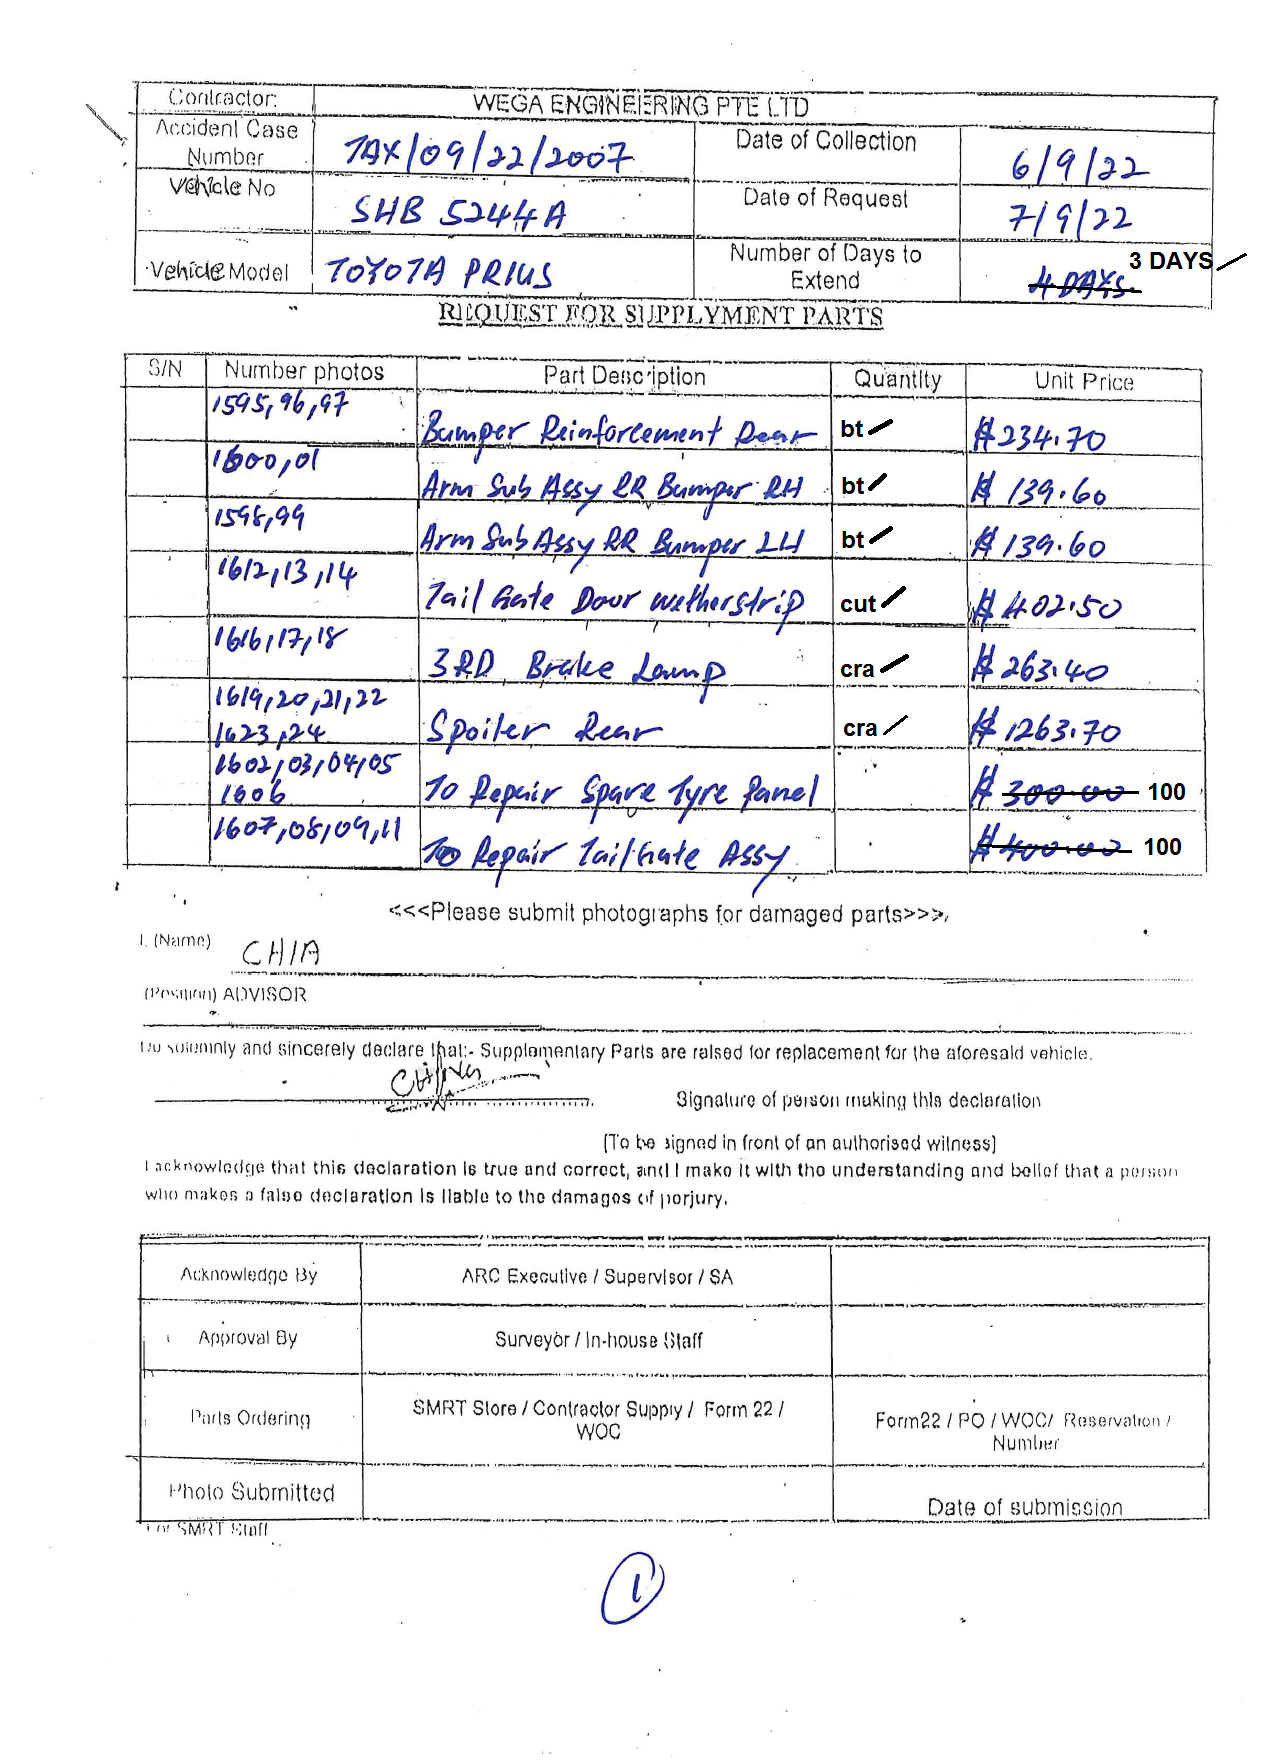 Contractor: WEGA ENGINEERING PTE LTD
Accident Case Number TAX/09/22/2007 Date of Collection 6/9/22
Vehicle No SHB 5244A Date of Request 7/9/22
Vehicle Model TOYOTA PRIUS Number of Days to Extend 4 DAYS. 3 DAYS
REQUEST FOR SUPPLYMENT PARTS
S/N Number photos Part Description Quantity Unit Price
1595,96,97 Bumper Reinforcement Rear bt $234.70
1600,01 Arm Sub Assy RR Bumper RH bt $139.60
1598,99 Arm Sub Assy RR Bumper LH bt $139.60
1612,13,14 Tail Gate Door Wetherstrip cut $402.50
1616,17,18 3RD Brake Lamp cra $263.40
1619,20,21,22
1623,24 Spoiler Rear cra $1263.70
1602,03,04,05
1606 To Repair Spare Tyre Panel $300.00 100
1607,08,09,11 To Repair TailGate Assy $400.00 100
<<<Please submit photographs for damaged parts>>>.
I. (Name) CHIA
(Position) ADVISOR
Do solemnly and sincerely declare that:- Supplementary Parts are raised for replacement for the aforesaid vehicle.
Signature of person making this declaration
[To be signed in front of an authorised witness]
I acknowledge that this declaration is true and correct, and I make it with the understanding and belief that a person
who makes a false declaration is liable to the damages of perjury.
Acknowledge By ARC Executive / Supervisor / SA
Approval By Surveyor / In-house Staff
Parts Ordering SMRT Store / Contractor Supply / Form 22 / WOC Form22 / PO / WOC/ Reservation / Number
Photo Submitted Date of submission
For SMRT Staff
1